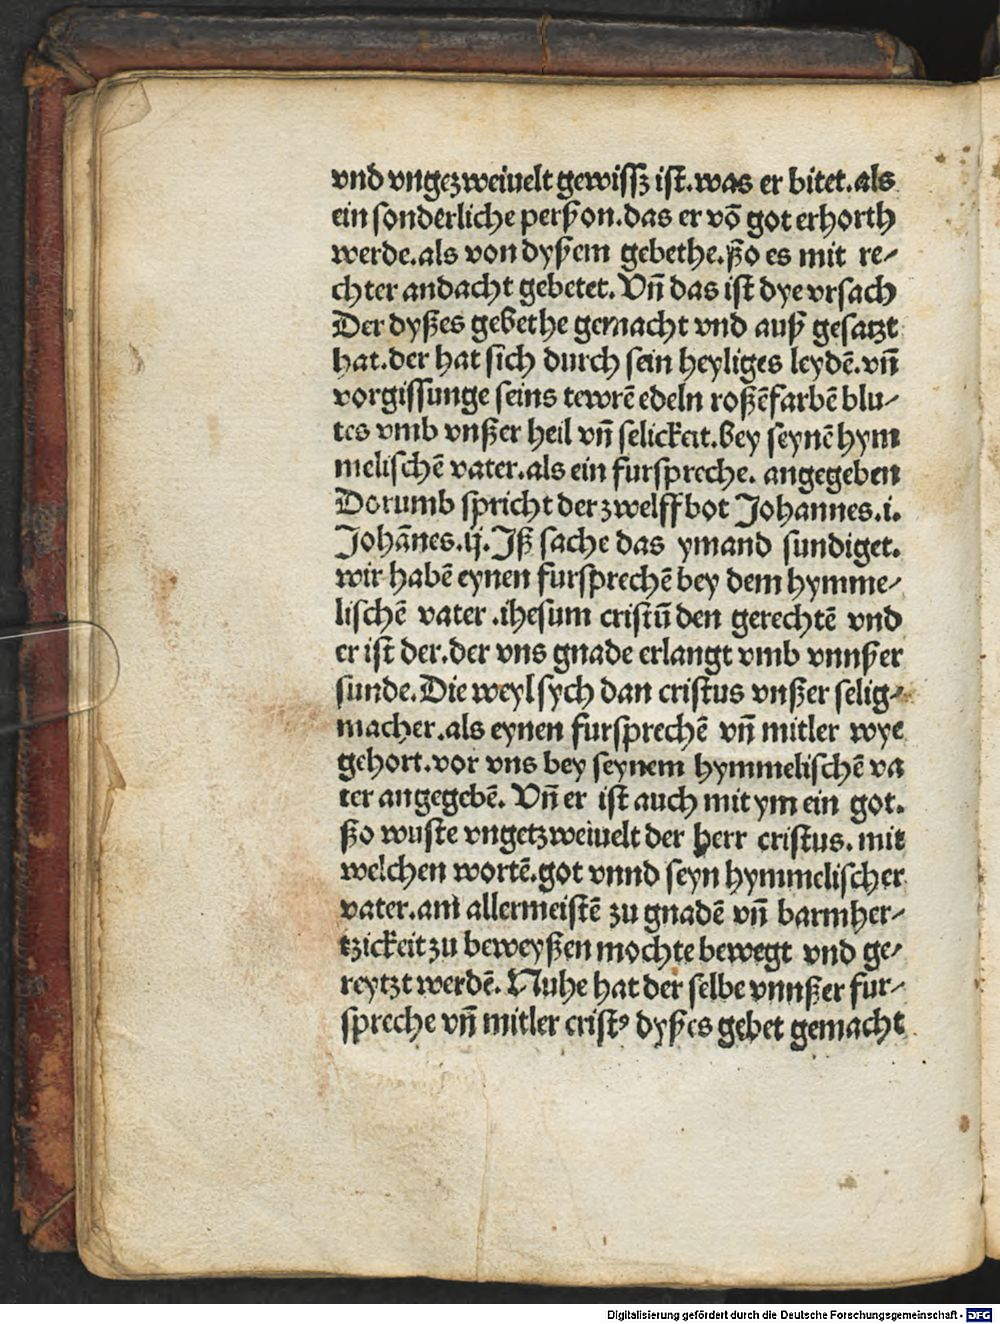 vnd vngezweiuelt gewissz ist.was er bitet.als
ein sonderliche perßon.das er vō got erhorth
werde.als von dyßem gebethe.ßo es mit re⸗
chter andacht gebetet. Vn̄ das ist dye vrsach
Der dyßes gebethe gemacht vnd auß gesatzt
hat.der hat sich durch sein heyliges leydē.vn̄
vorgissunge seins tewrē edeln roßēfarbē blu⸗
tes vmb vnßer heil vn̄ selickeit.bey seynē hym
melischē vater.als ein furspreche. angegeben
Dorumb spricht der zwelffbot Johannes.i.
Johānes.ij. Jß sache das ymand sundiget.
wir habē eynen fursprechē bey dem hymme⸗
lischē vater .ihesum cristū den gerechtē vnd
er ist der.der vns gnade erlangt vmb vnnßer
sunde.Die weyl sych dan cristus vnßer selig⸗
macher.als eynen fursprechē vn̄ mitler wye
gehort.vor vns bey seynem hymmelischē va
ter angegebē. Vn̄ er ist auch mit ym ein got.
ßo wuste vngetzweiuelt der herr cristus. mit
welchen wortē.got vnnd seyn hymmelischer
vater.am allermeistē zu gnadē vn̄ barmher⸗
tzickeit zu beweyßen mochte bewegt vnd ge⸗
reytzt werdē. Nuhe hat der selbe vnnßer fur⸗
spreche vn̄ mitler cristꝰ dyßes gebet gemacht
Digitalisierung gefördert durch die Deutsche Forschungsgemeinschaft - DFG